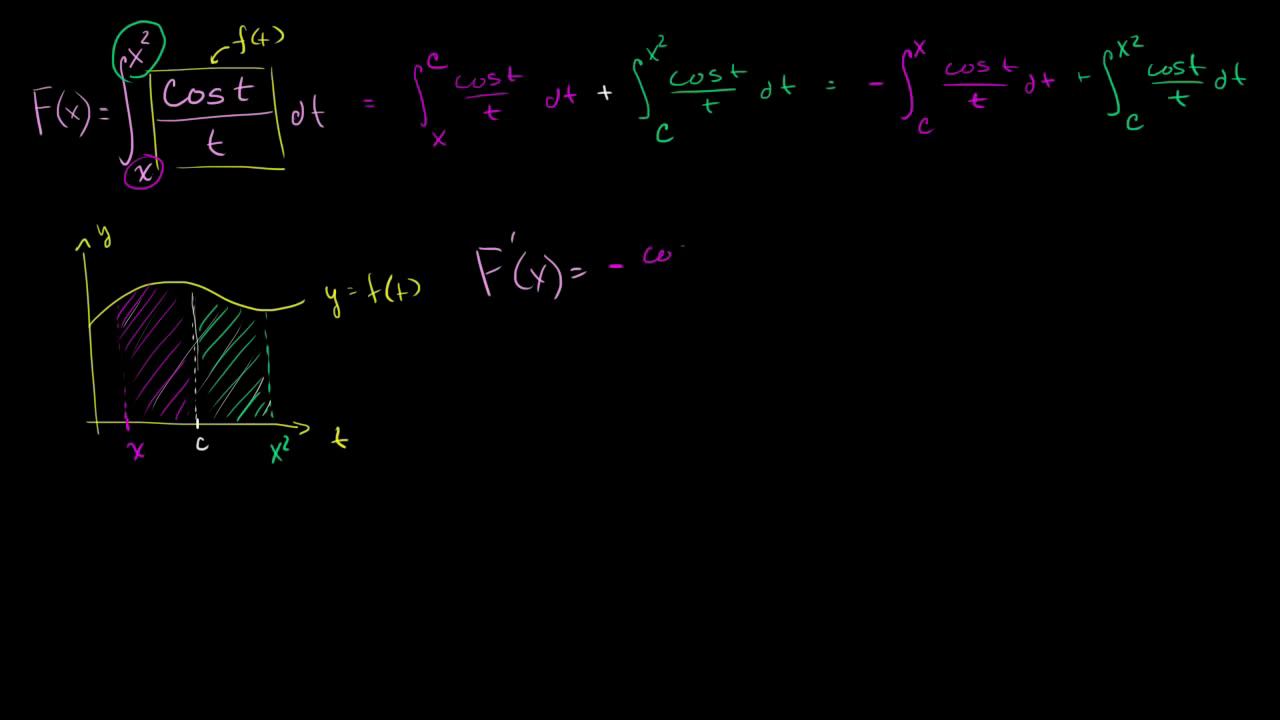 F(x) = ∫_x^{x²} cos t / t dt = ∫_x^c cos t / t dt + ∫_c^{x²} cos t / t dt = - ∫_c^x cos t / t dt + ∫_c^{x²} cos t / t dt
f(t)
y
y = f(t)
F'(x) = - co
x c x² t